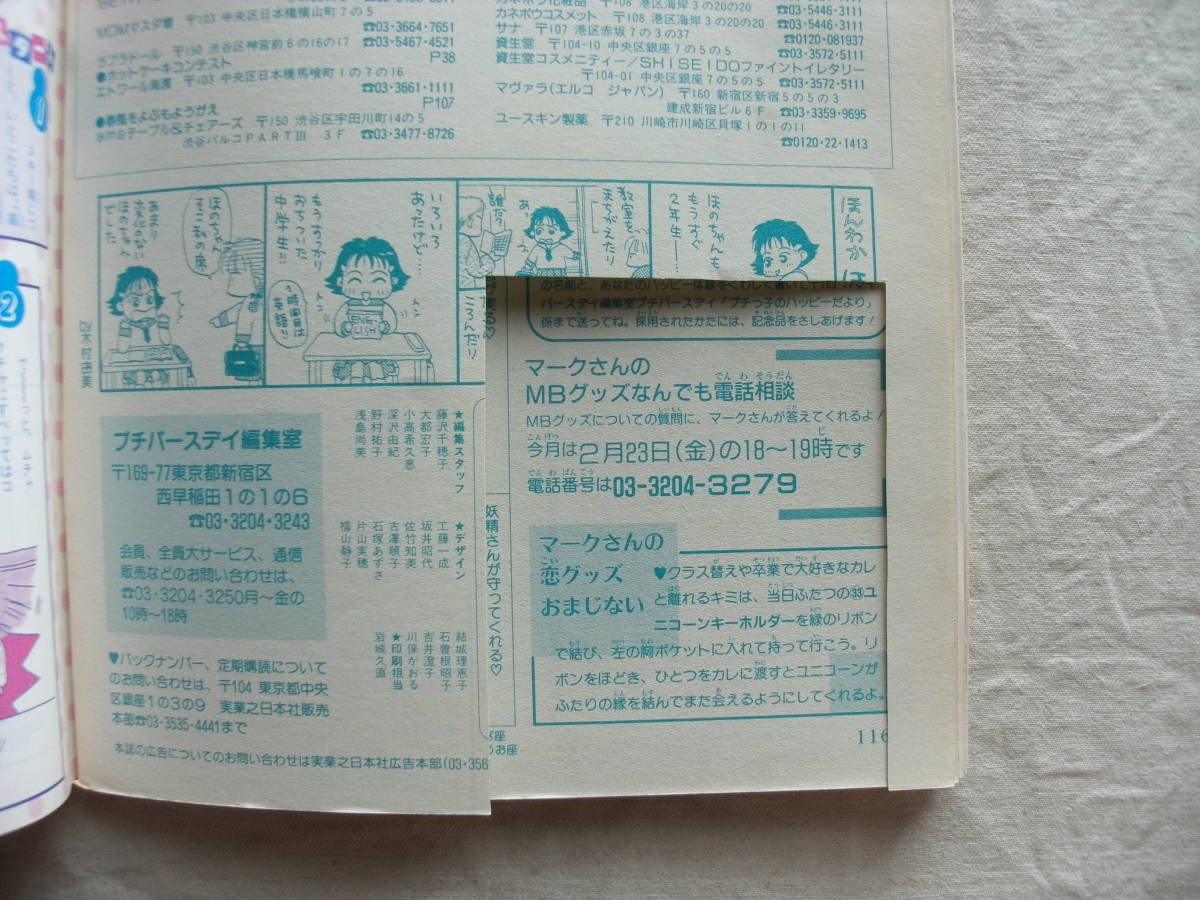 MDMマスダ増 〒103 中央区日本橋横山町7の5
☎03・3664・7651
ラブラドール 〒150 渋谷区神宮前6の16の17 ☎03・5467・4521
●ホットケーキコンテスト P38
エトワール海渡 〒103 中央区日本橋馬喰町1の7の16
☎03・3661・1111
●春風をよぶもようがえ P107
emsテーブル&チェアーズ 〒150 渋谷区宇田川町14の5
渋谷パルコPARTⅢ 3F ☎03・3477・8726
カネボウ化粧品 〒108 港区海岸3の20の20
☎03・5446・3111
カネボウコスメット 〒108 港区海岸3の20の20
☎03・5446・3111
サナ 〒107 港区赤坂7の3の37 ☎0120・081937
資生堂 〒104-10 中央区銀座7の5の5 ☎03・3572・5111
資生堂コスメニティー/SHISEIDOファイントイレタリー
〒104-01 中央区銀座7の5の5 ☎03・3572・5111
マヴァラ(エルコ ジャパン) 〒160 新宿区新宿5の5の3
建成新宿ビル6F ☎03・3359・9695
ユースキン製薬 〒210 川崎市川崎区貝塚1の1の11
☎0120・22・1413
ほんわか
ほのちゃんも
もうすぐ
2年生──…
教室を
まちがえたり
誰だ?
あっ
ころんだり
いろいろ
あったけど…
もうすっかり
おちついた
中学生!!
トン
トン
ENG
LISH
1時間目は
英語!!
ほのちゃん
そこ私の席
あまり
変化のない
ほのちゃん
でした
by木村由美
プチバースデイ編集室
〒169-77東京都新宿区
西早稲田1の1の6
☎03・3204・3243
会員、全員大サービス、通信
販売などのお問い合わせは、
☎03・3204・3250月〜金の
10時〜18時
♥バックナンバー、定期購読について
のお問い合わせは、〒104 東京都中央
区銀座1の3の9 実業之日本社販売
本部☎03・3535・4441まで
本誌の広告についてのお問い合わせは実業之日本社広告本部(03・356
★編集スタッフ
藤沢千穂子
大都宏子
小高希久恵
深沢由紀
野村祐子
浅島尚美
★デザイン
工藤一成
坂井昭代
佐竹知美
古澤順子
石塚あずさ
片山実穂
福山静子
結城理恵子
石曽根昭子
吉井澄子
川保かおる
★印刷担当
岩城久直
妖精さんが守ってくれる♡
の名前と、あなたのハッピー体験をくわしく書いて
バースデイ編集室プチバースデイ「プチっ子のハッピーだより」
係まで送ってね。採用されたかたには、記念品をさしあげます!
マークさんの
MBグッズなんでも電話相談
MBグッズについての質問に、マークさんが答えてくれるよ!
今月は2月23日(金)の18〜19時です
電話番号は03-3204-3279
マークさんの
恋グッズ
おまじない
♥クラス替えや卒業で大好きなカレ
と離れるキミは、当日ふたつの㉝ユ
ニコーンキーホルダーを緑のリボン
で結び、左の胸ポケットに入れて持って行こう。リ
ボンをほどき、ひとつをカレに渡すとユニコーンが
ふたりの縁を結んでまた会えるようにしてくれるよ。
116